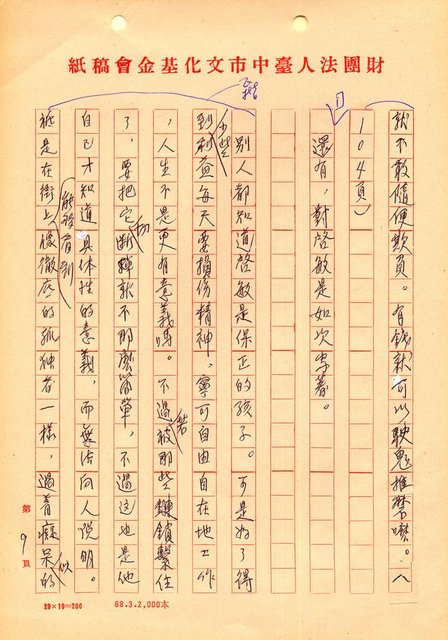 財團法人臺中市文化基金會稿紙
就不敢隨便欺負。有錢就可以駛鬼推磨噢。（
104頁）
還有，對啓敏是如次寫着。
別人都知道啓敏是保正的孩子。可是為了得
到利益每天要損傷精神，寧可自由自在地工作
，人生不是更有意義嗎。不過被那些鏈鎖繫住
了，要把它切斷掉就不那麼簡單，不過這也是他
自己才知道具体性的意義，而無法向人說明。
祇是在街上能談得到像徹底的孤独者一樣，過着癡呆似的
第9頁
20×10=200
68.3.2,000本